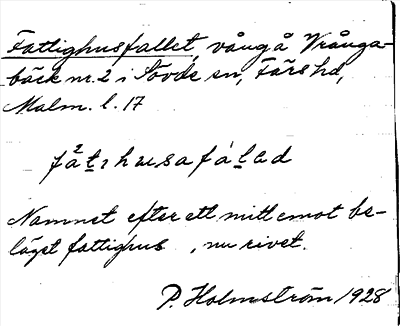 Fattighusfallet, vång å Vrånga-
bäck nr. 2 i Sövde sn, Färs hd,
Malm. l. 17
fa²tıhusafálad
Namnet efter ett mitt emot be-
läget fattighus, nu rivet.
P. Holmström 1928